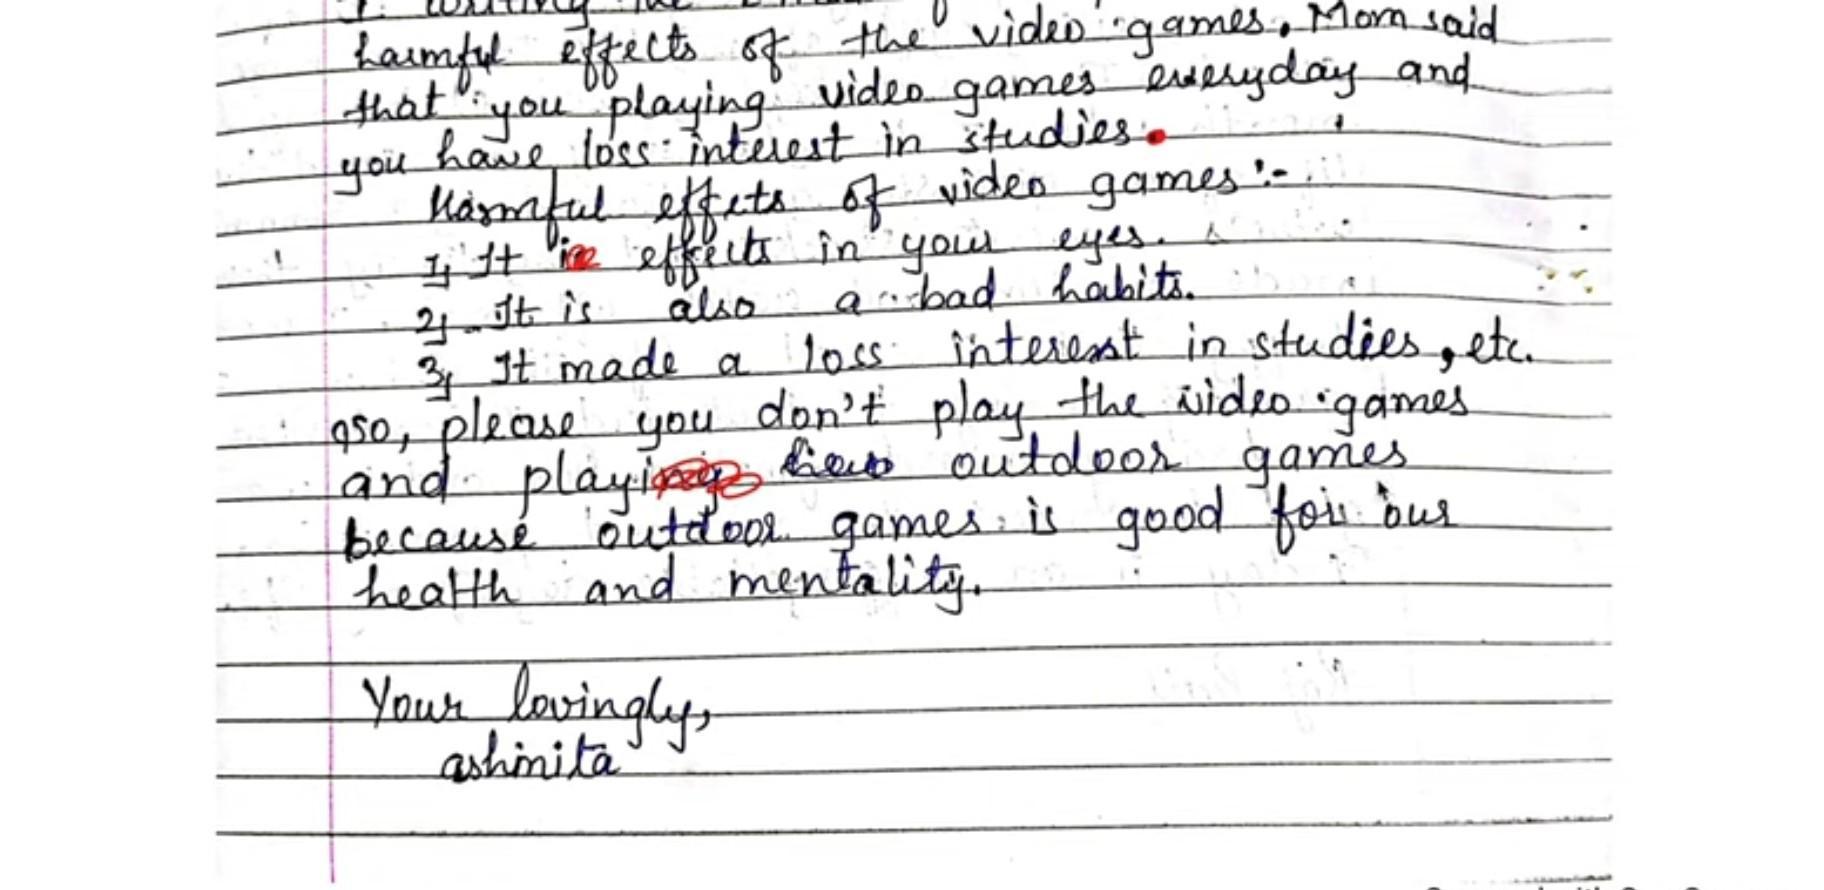 harmful effects of the video games. Mom said
that you playing video games everyday and
you have loss interest in studies.
Harmful effets of video games :-
1) It effects in your eyes.
2) It is also a bad habits.
3) It made a loss interest in studies, etc.
so, please you don't play the video games
and playing outdoor games
because outdoor games is good for our
health and mentality.
Your lovingly,
ashmita